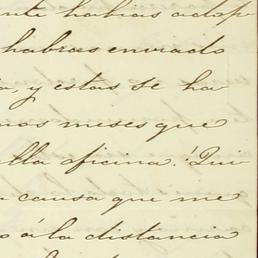 nte habias adop
habras enviado
a, y estas se ha
nos meses que
lla oficina! Qui
causa que me
o á la distancia